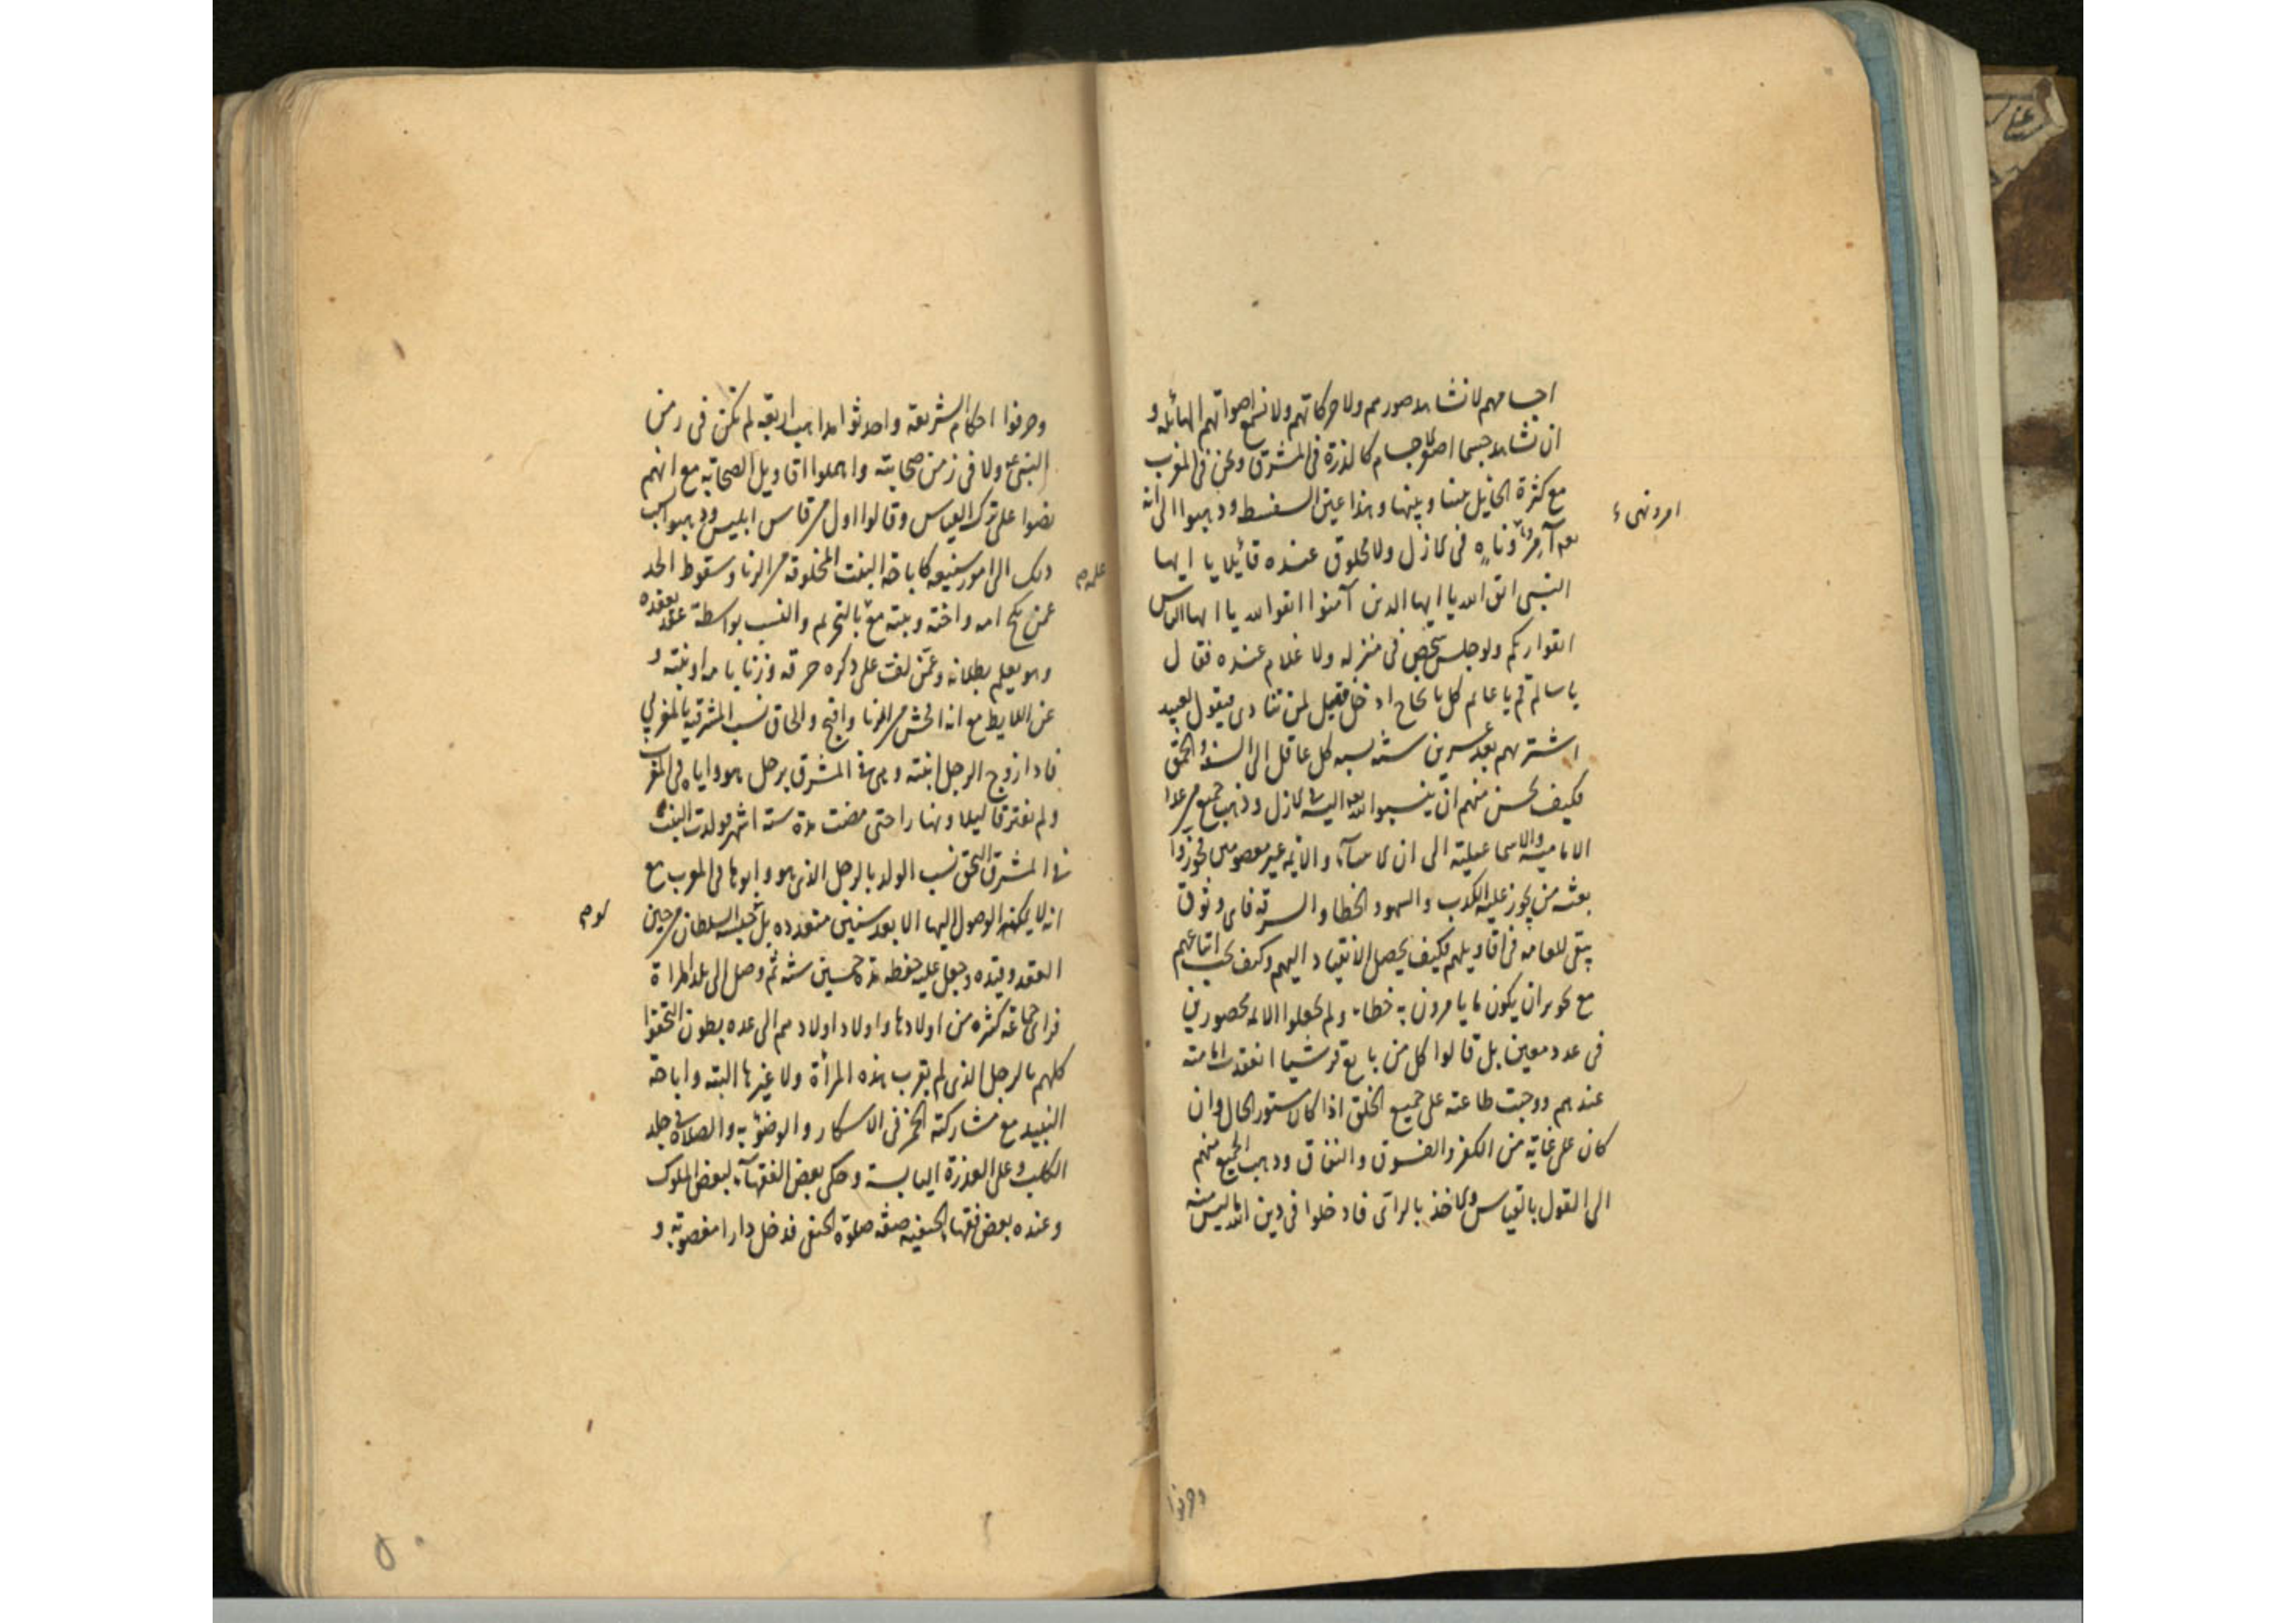 اجسامهم لا نشاهد صورهم ولا حركاتهم ولا نسمع اصواتهم الهائلة و
ان نشاهد جسما اصغر الاجسام كالذرة فى المشرق ونحن فى المغرب
مع كثرة الحايل بيننا وبينها وهذا عين السفسطه وذهبوا الى انه
امر ونهى
تعالى آمر وناهٍ فى الازل ولا مخلوق عنده قائلا يا ايها
النبى اتق الله يا ايها الذين آمنوا اتقوا الله يا ايها الناس
اتقوا ربكم ولو جلس شخص فى منزله ولا غلام عنده فقال
يا سالم قم يا غانم كل يا نجاح ادخل فقيل لمن تنادى فيقول لعبيد
اشتريهم بعد عشرين سنة نسبه كل عاقل الى السفه والحمق
فكيف يحسن منهم ان ينسبوا الله تعالى اليه فى الازل وذهب جميع من عدا
الامامية والاسماعيلية الى ان الانبيآء والائمة غير معصومين فجوزوا
بعثة من يجوز عليه الكذب والسهو والخطا والسرقة فاى وثوق
يبقى للعامة فى اقاويلهم فكيف يحصل الانقياد اليهم وكيف يجب اتباعهم
مع تجويز ان يكون ما يامرون به خطاء ولم يجعلوا الائمة محصورين
فى عدد معين بل قالوا كل من بايع قرشيا انعقدت امامته
عندهم ووجبت طاعته على جميع الخلق اذا كان مستور الحال وان
كان على غاية من الكفر والفسوق والنفاق وذهب الجميع منهم
الى القول بالقياس والاخذ بالراى فادخلوا فى دين الله ما ليس منه
وحرفوا
وحرفوا احكام الشريعة واحدثوا مذاهب اربعة لم تكن فى زمن
النبى ولا فى زمن صحابته واهملوا اقاويل الصحابة مع انهم
نصوا على ترك القياس وقالوا اول من قاس ابليس وذهبوا بسبب
ذلك الى امور شنيعة كاباحة البنت المخلوقة من الزنا وسقوط الحد
عمن نكح امه واخته وبنته مع علمه بالتحريم والنسب بواسطة عقد يعقده
وهو يعلم بطلانه وعمن لف على ذكره خرقة وزنا بامه او بنته و
عن اللايط مع انه افحش من الزنا واقبح والحاق نسب المشرقية بالمغربى
فاذا زوج الرجل ابنته وهى فى المشرق برجل هو واياه فى المغرب
ولم يفترقا ليلا ونهارا حتى مضت مدة ستة اشهر فولدت البنت
فى المشرق التحق نسب الولد بالرجل الذى هو وابوها فى المغرب مع
انه لا يمكنه الوصول اليها الا بعد سنين متعدده بل لو حبسه السلطان من حين
العقد وقيده وجعل عليه حفظة مدة خمسين سنة ثم وصل الى بلد المراة
فراى جماعة كثيرة من اولادها واولاد اولادهم الى عدة بطون التحقوا
كلهم بالرجل الذى لم يقرب هذه المرأة ولا غيرها البتة واباحة
النبيذ مع مشاركته الخمر فى الاسكار والوضوء به والصلاة فى جلد
الكلب وعلى العذرة اليابسة وحكى بعض الفقهآء لبعض الملوك
وعنده بعض فقهاء الحنفية صفة صلوة الحنفى فدخل دارا مغصوبة و